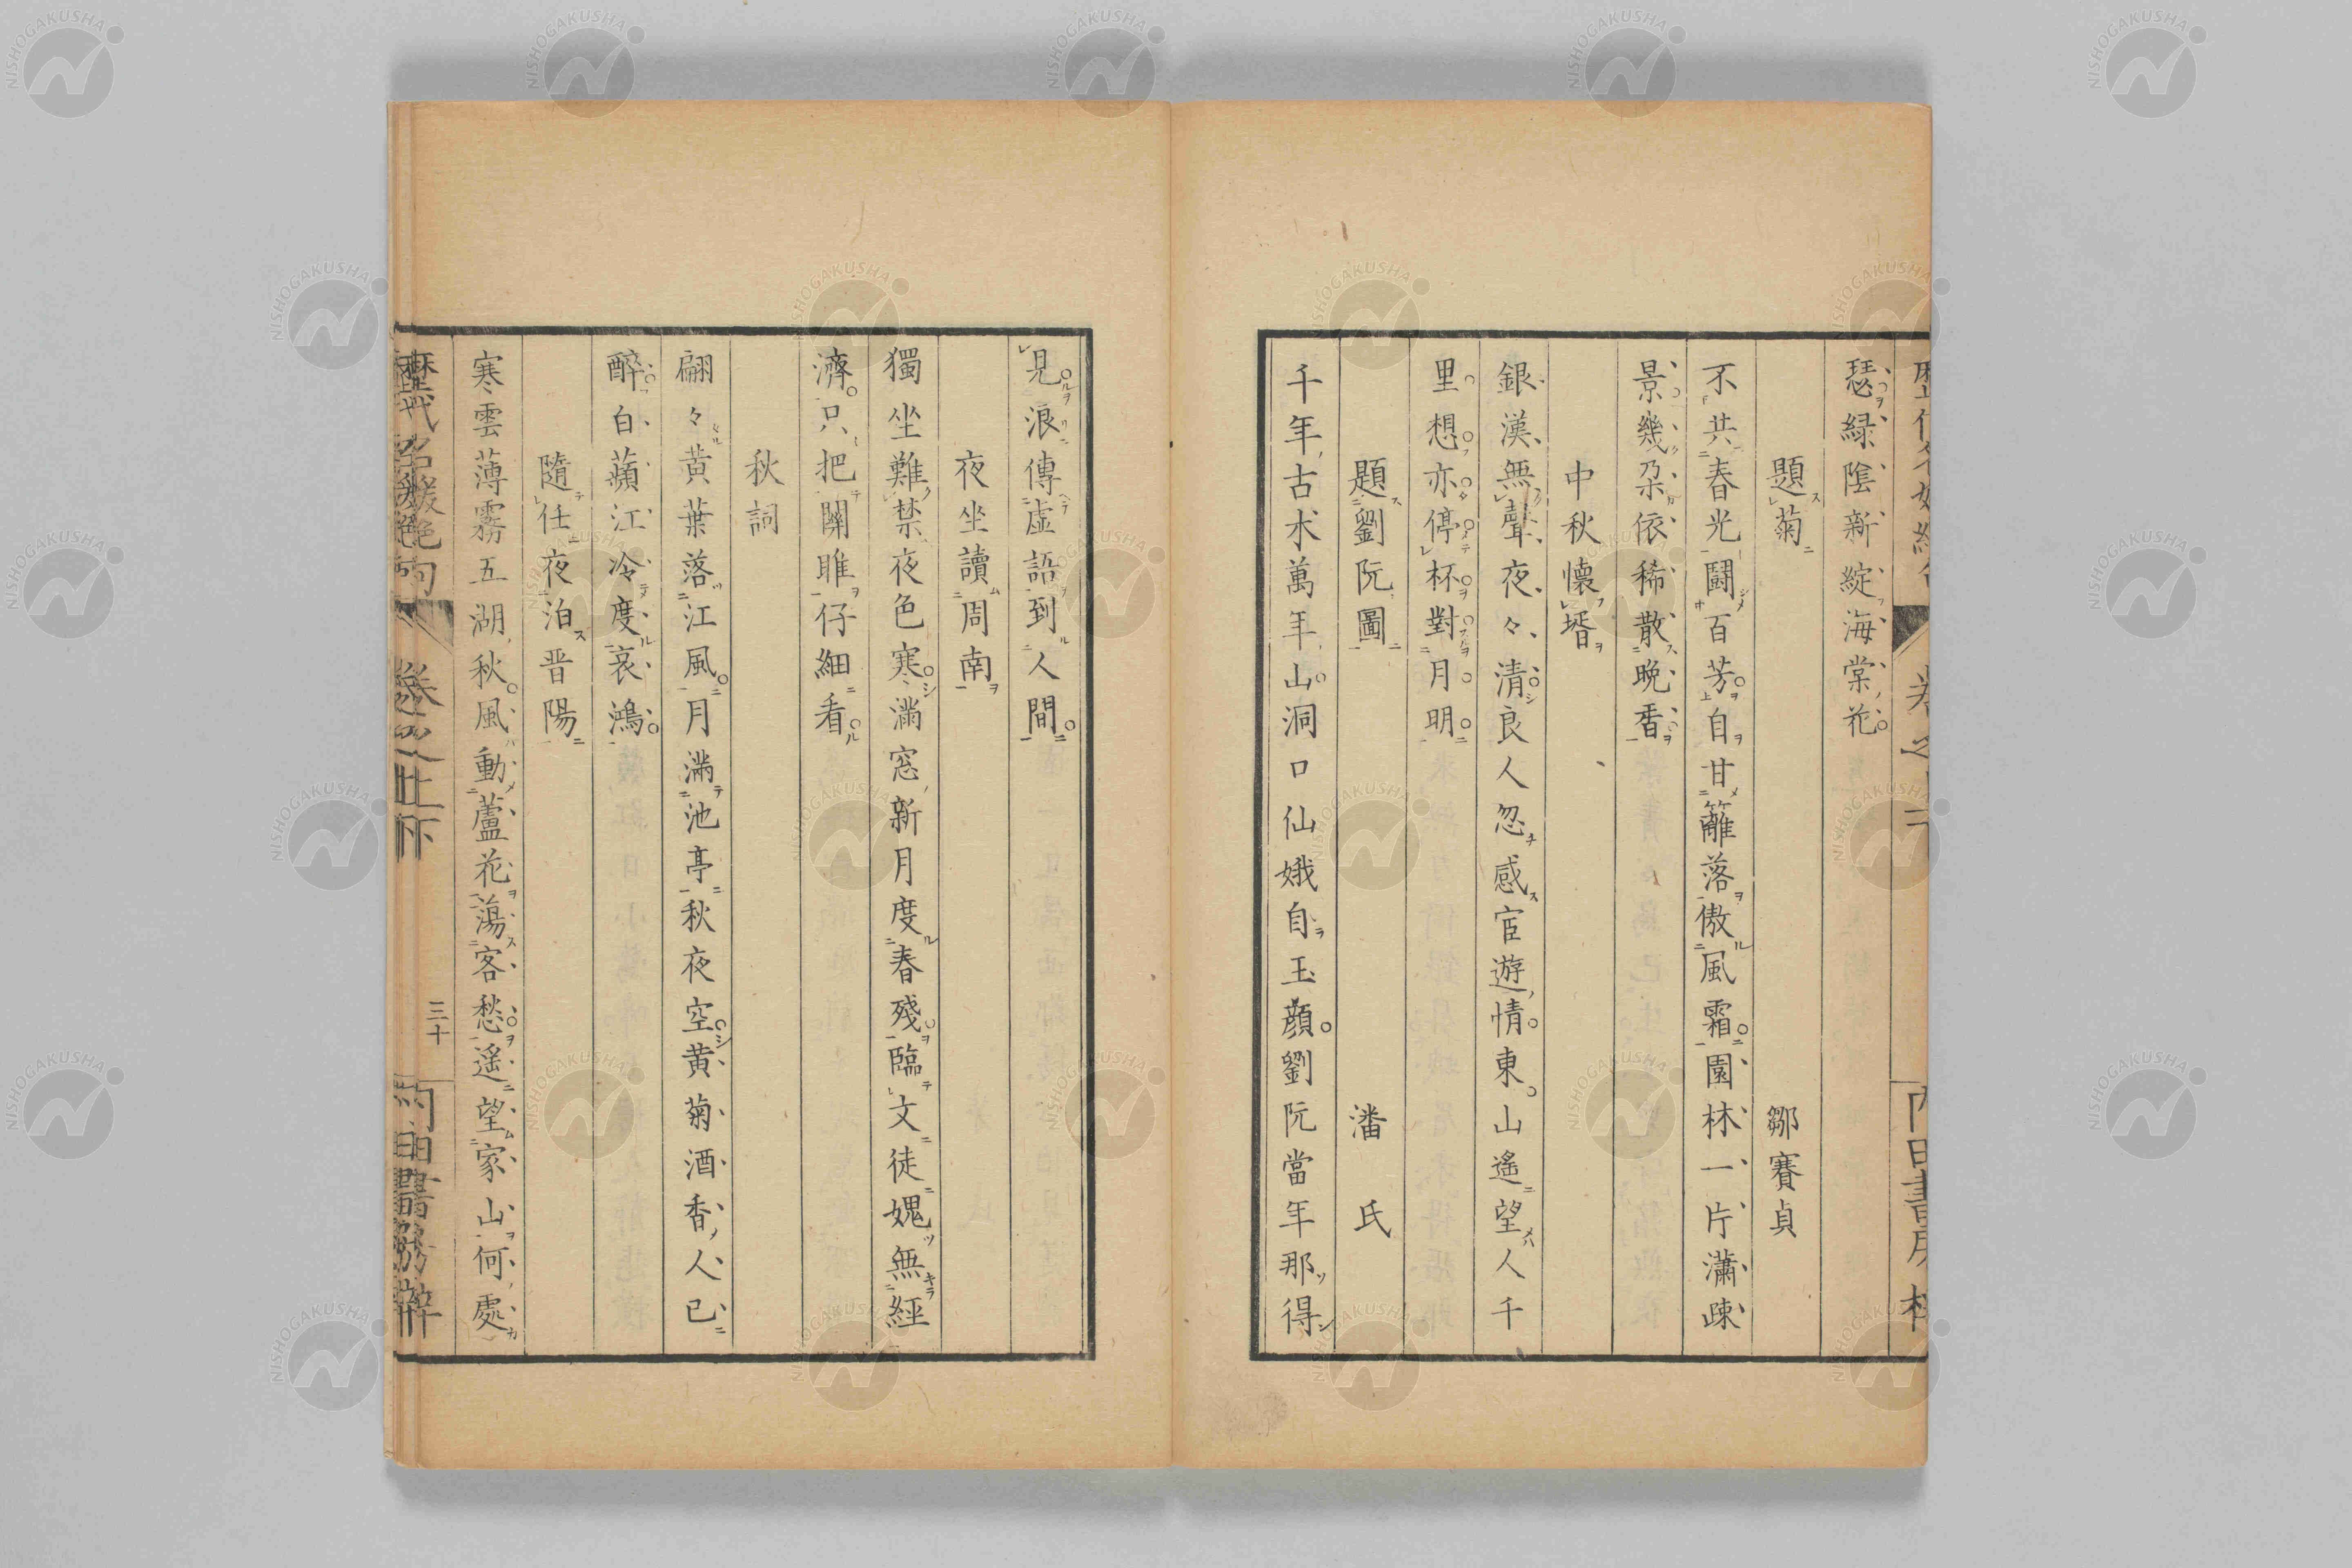 瑟綠陰新綻海棠花
題菊 鄒賽貞
不共春光鬪百芳自甘籬落傲風霜園林一片瀟疎
景幾朶依稀散晚香
中秋懷壻
銀漢無聲夜々清良人忽感宦遊情東山遙望人千
里想亦停杯對月明
題劉阮圖 潘氏
千年古木萬年山洞口仙娥自玉顏劉阮當年那得
見浪傳虛語到人間
夜坐讀周南
獨坐難禁夜色寒滿窓新月度春殘臨文徒媿無經
濟只把關雎仔細看
秋詞
翩々黃葉落江風月滿池亭秋夜空黃菊酒香人已
醉白蘋江冷度哀鴻
隨任夜泊晋陽
寒雲薄霧五湖秋風動蘆花蕩客愁遙望家山何處
三十
NISHOGAKUSHA